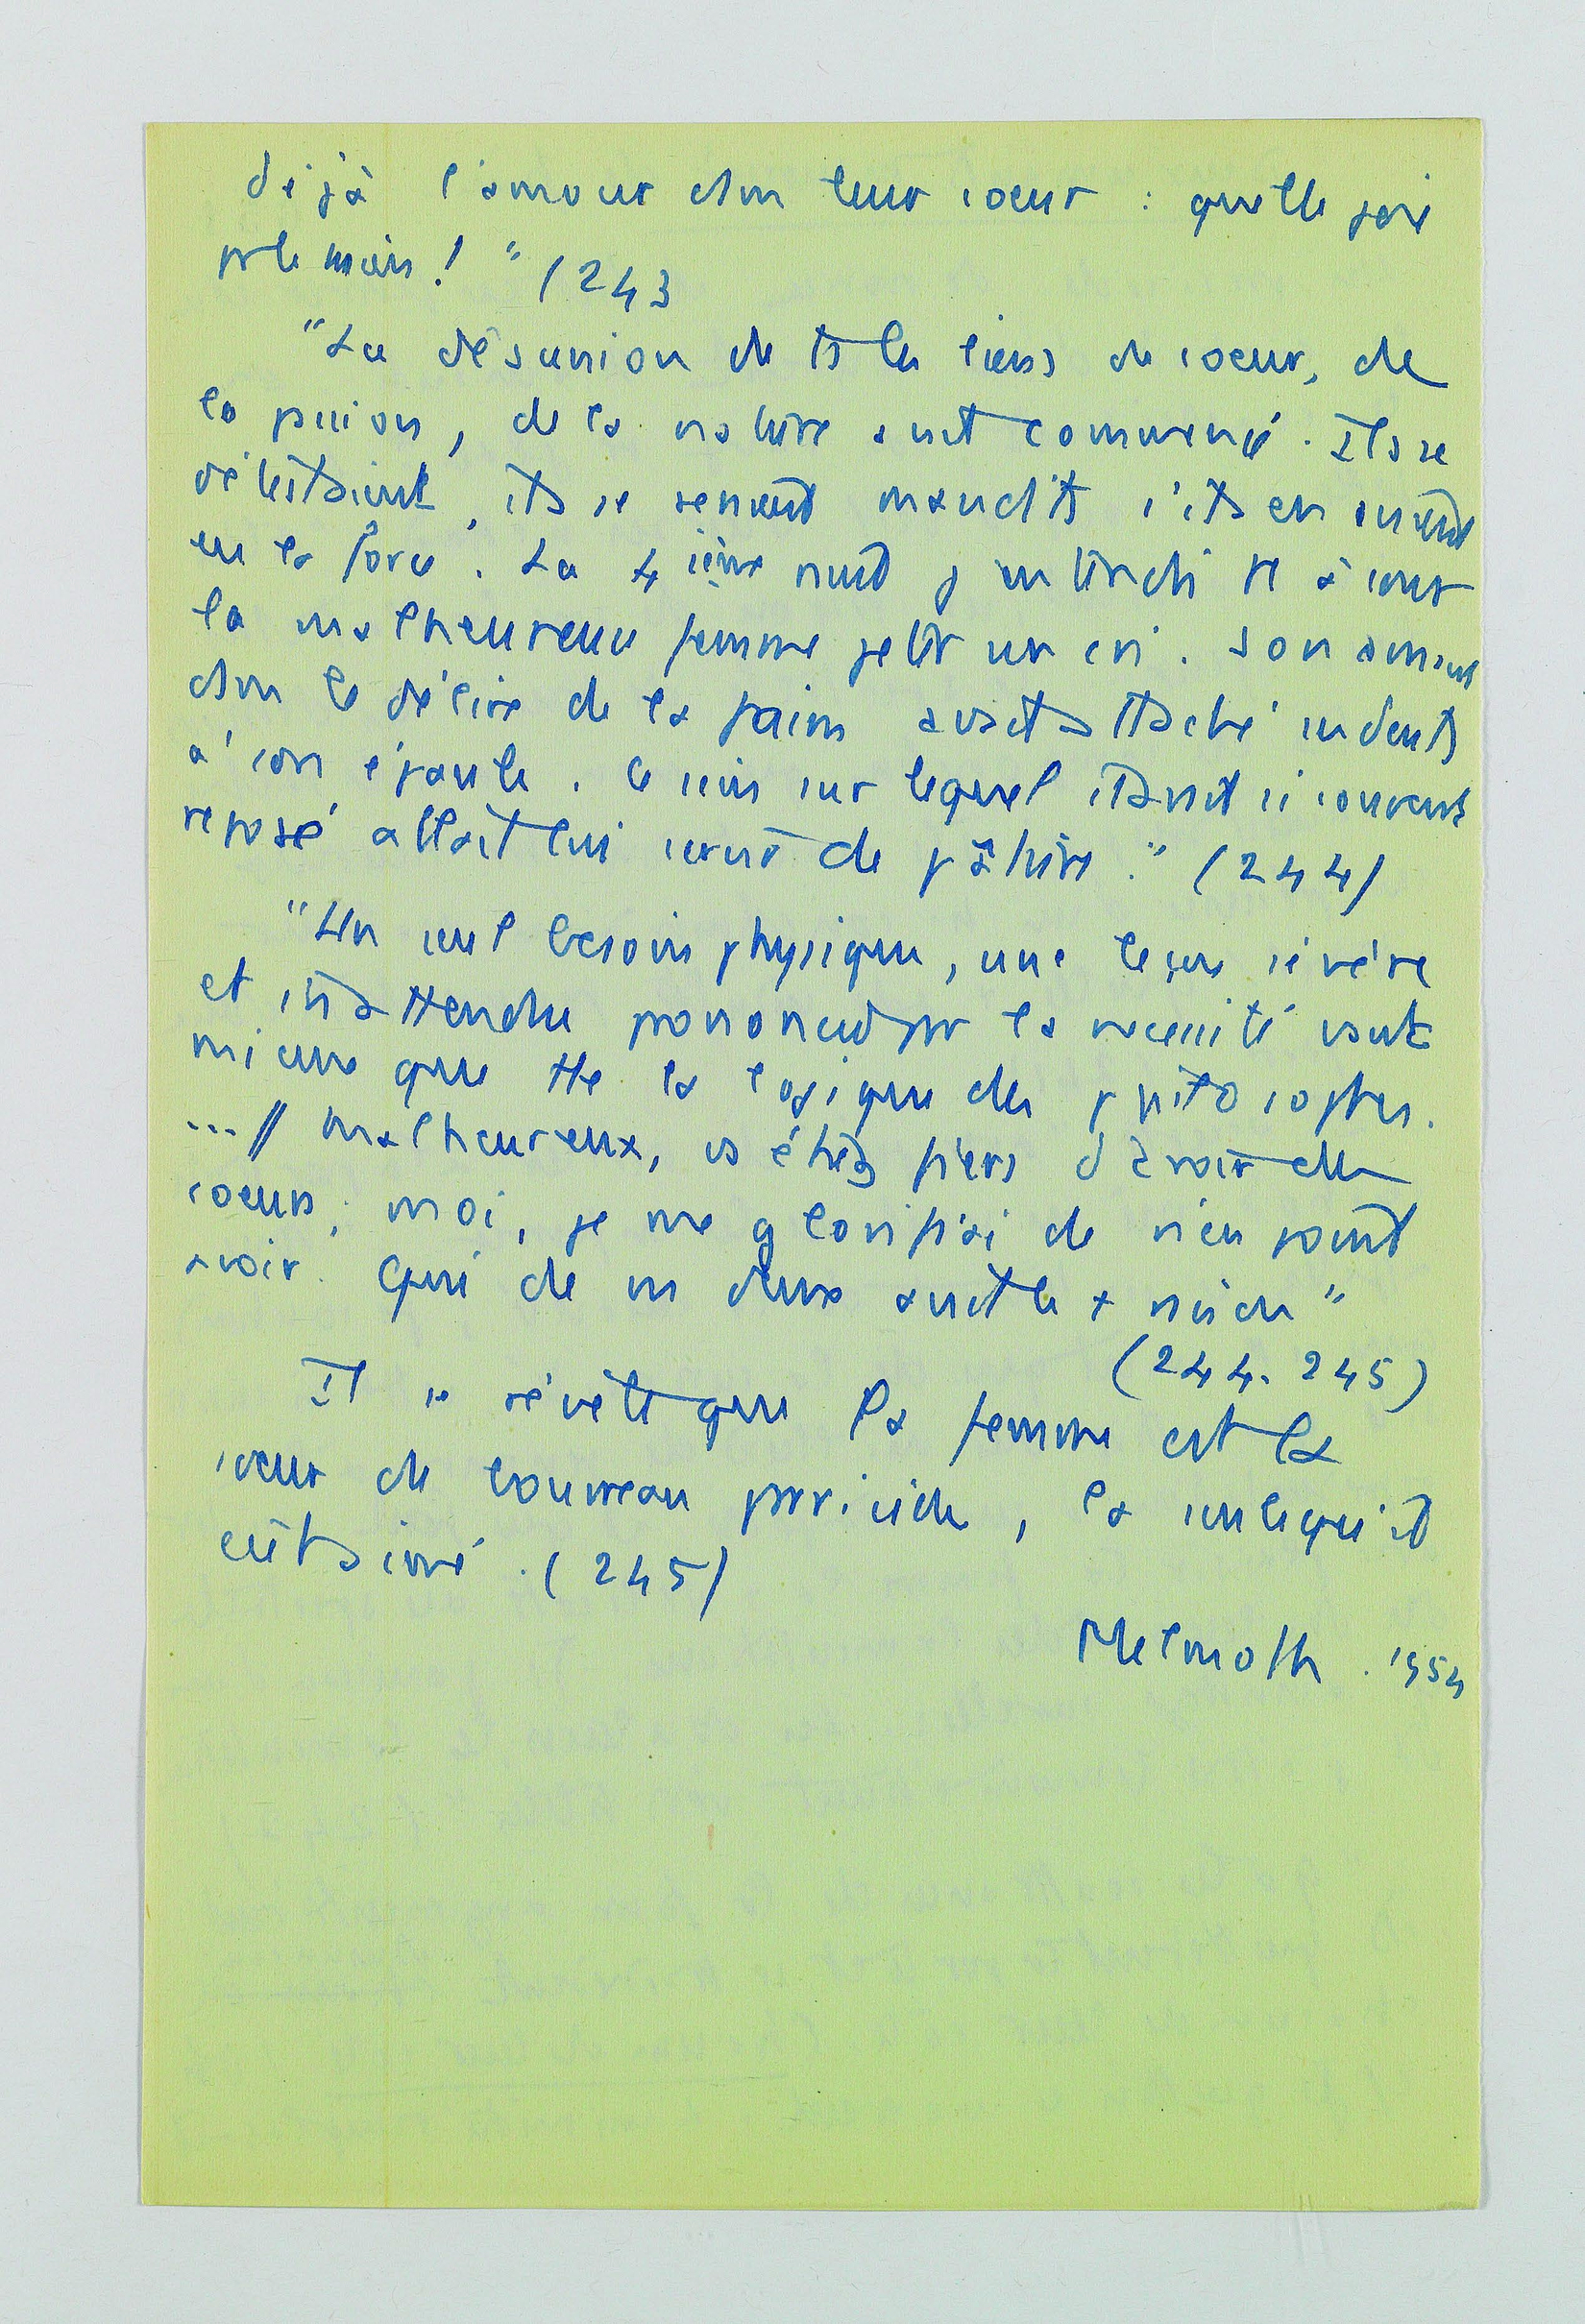 déjà l'amour dan leur coeur : quelle joie
pr le mien ! " (243
"La désunion de ts les liens de coeur, de
la passion, de la nature avait commencé. Ils se
détestaient, ils se seraient maudits s'ils en avaient
eu la force. La 4ième nuit j'entendis tt à coup
la malheureuse femme jeter un cri. Son amant
dan le délire de la faim avait attaché ses dents
à son épaule. Ce sein sur lequel il avait si souvent
reposé allait lui servir de pâture." (244)
"Un seul besoin physique, une leçon sévère
et inattendue prononcée par la nécessité vaut
mieux que tte la logique des philosophes.
...// Malheureux, vs étiez fiers d'avoir des
coeurs; moi, je me glorifiai de n'en point
avoir. Qui de ns deux avait le + raison"
(244. 245)
Il se révèle que la femme est la
soeur de bourreau parricide, la seule qu'il
eût aimé. (245)
Melmoth . 1954